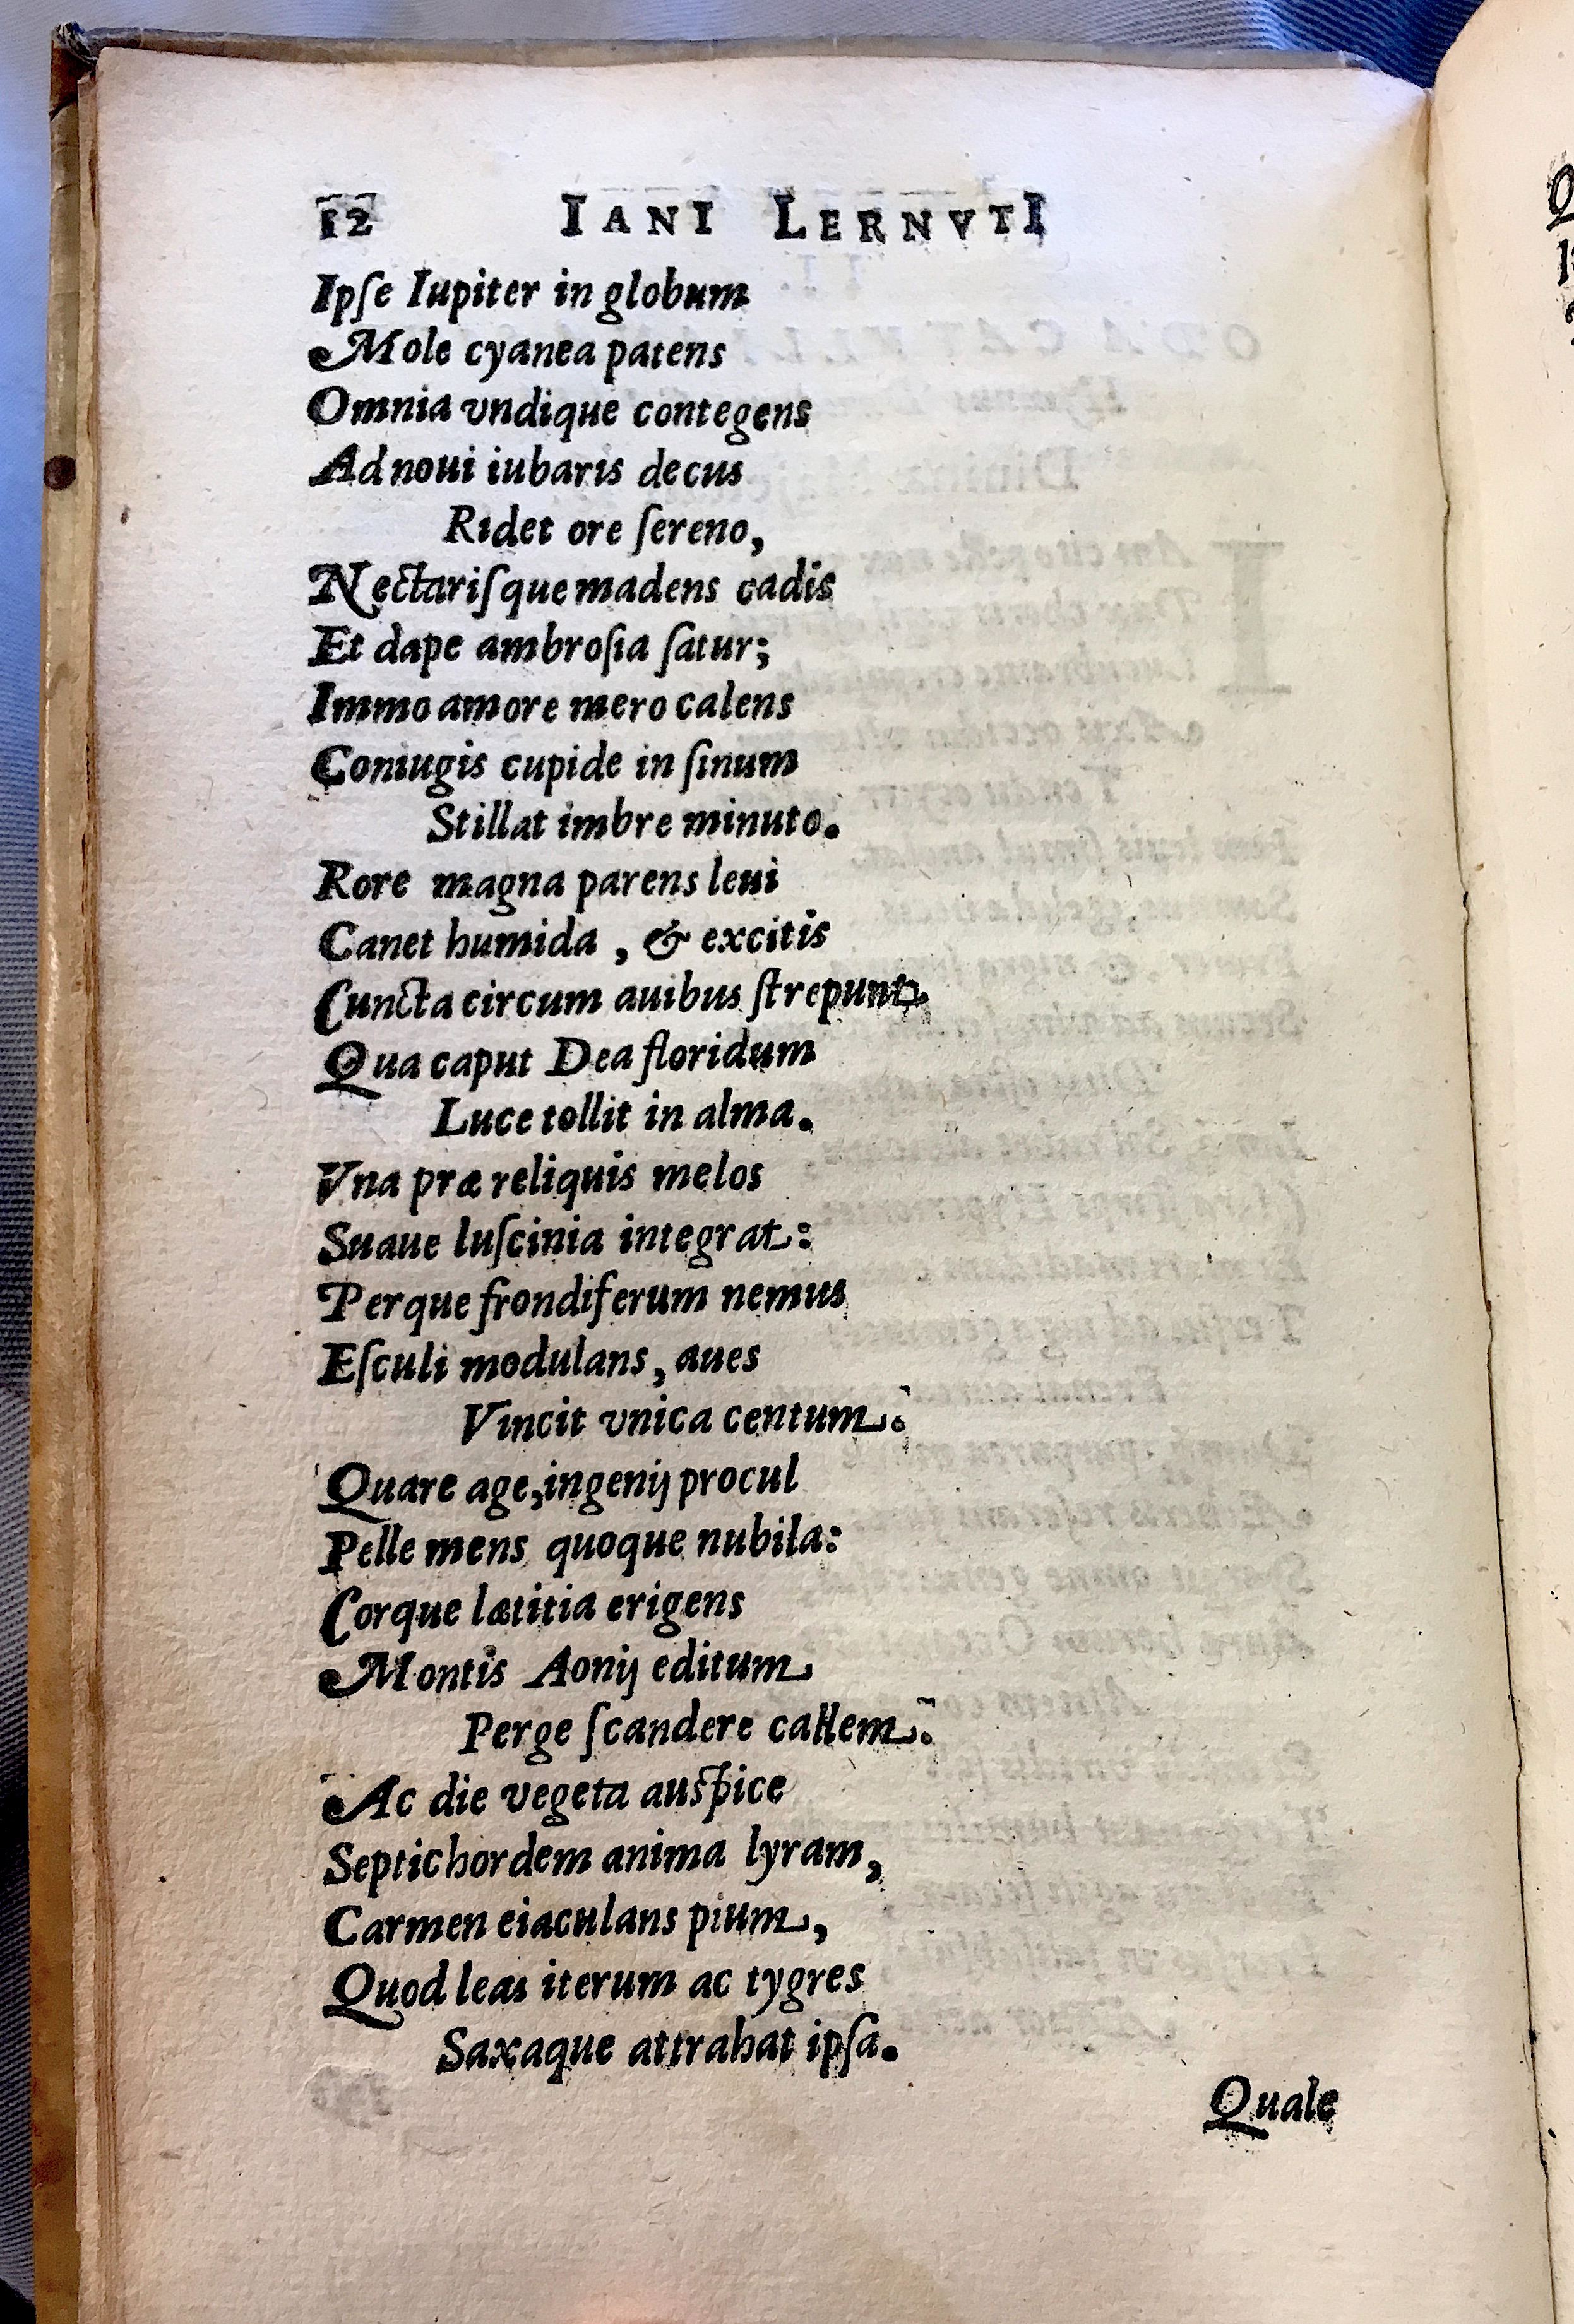 12 IANI LERNVTI
Ipſe Iupiter in globum
Mole cyanea patens
Omnia vndique contegens
Ad noui iubaris decus
Ridet ore ſereno,
Nectariſque madens cadis
Et dape ambroſia ſatur;
Immo amore mero calens
Coniugis cupide in ſinum
Stillat imbre minuto.
Rore magna parens leui
Canet humida , & excitis
Cuncta circum auibus ſtrepunt.
Qua caput Dea floridum
Luce tollit in alma.
Vna præ reliquis melos
Suaue luſcinia integrat:
Perque frondiferum nemus
Eſculi modulans, aues
Vincit vnica centum.
Quare age, ingenij procul
Pelle mens quoque nubila:
Corque lætitia erigens
Montis Aonij editum
Perge ſcandere callem.
Ac die vegeta auſpice
Septichordem anima lyram,
Carmen eiaculans pium,
Quod leas iterum ac tygres
Saxaque attrahat ipſa.
Quale